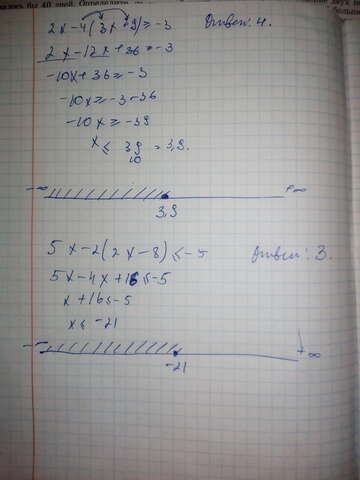 2x-4(3x-9)≥-3 Ответ: 4.
2x-12x+36≥-3
-10x+36≥-3
-10x≥-3-36
-10x≥-39
x≤ 39/10 = 3,9.
-∞ +∞
3,9
5x-2(2x-8)≤-5 Ответ: 3.
5x-4x+16≤-5
x+16≤-5
x≤-21
-∞ +∞
-21